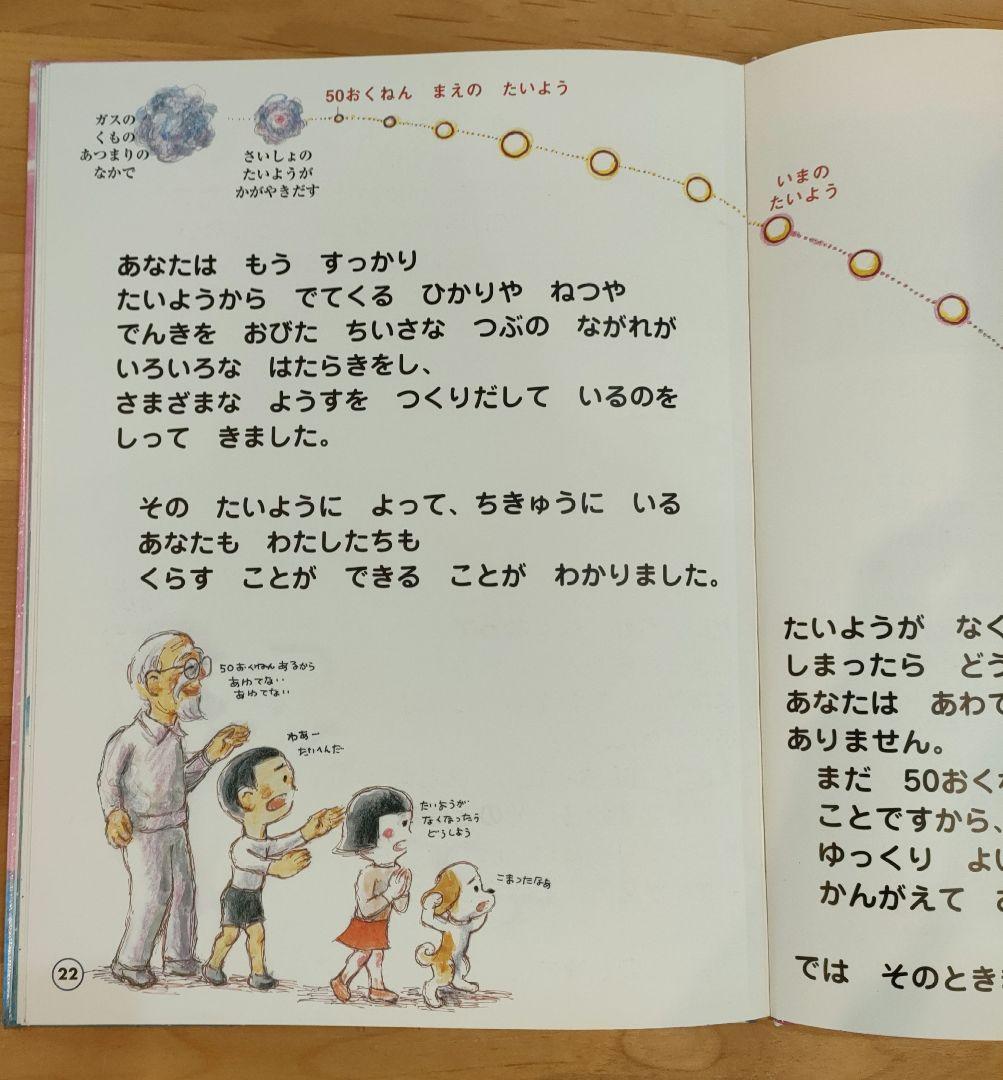 ガスの
くもの
あつまりの
なかで
さいしょの
たいようが
かがやきだす
50おくねん まえの たいよう
いまの
たいよう
あなたは もう すっかり
たいようから でてくる ひかりや ねつや
でんきを おびた ちいさな つぶの ながれが
いろいろな はたらきをし、
さまざまな ようすを つくりだして いるのを
しって きました。
その たいように よって、ちきゅうに いる
あなたも わたしたちも
くらす ことが できる ことが わかりました。
50おくねん あるから
あわてない
あわてない
わあー
たいへんだ
たいようが
なくなったら
どうしよう
こまったなあ
22
たいようが なく
しまったら どう
あなたは あわて
ありません。
まだ 50おくね
ことですから、
ゆっくり よい
かんがえて
では そのときま